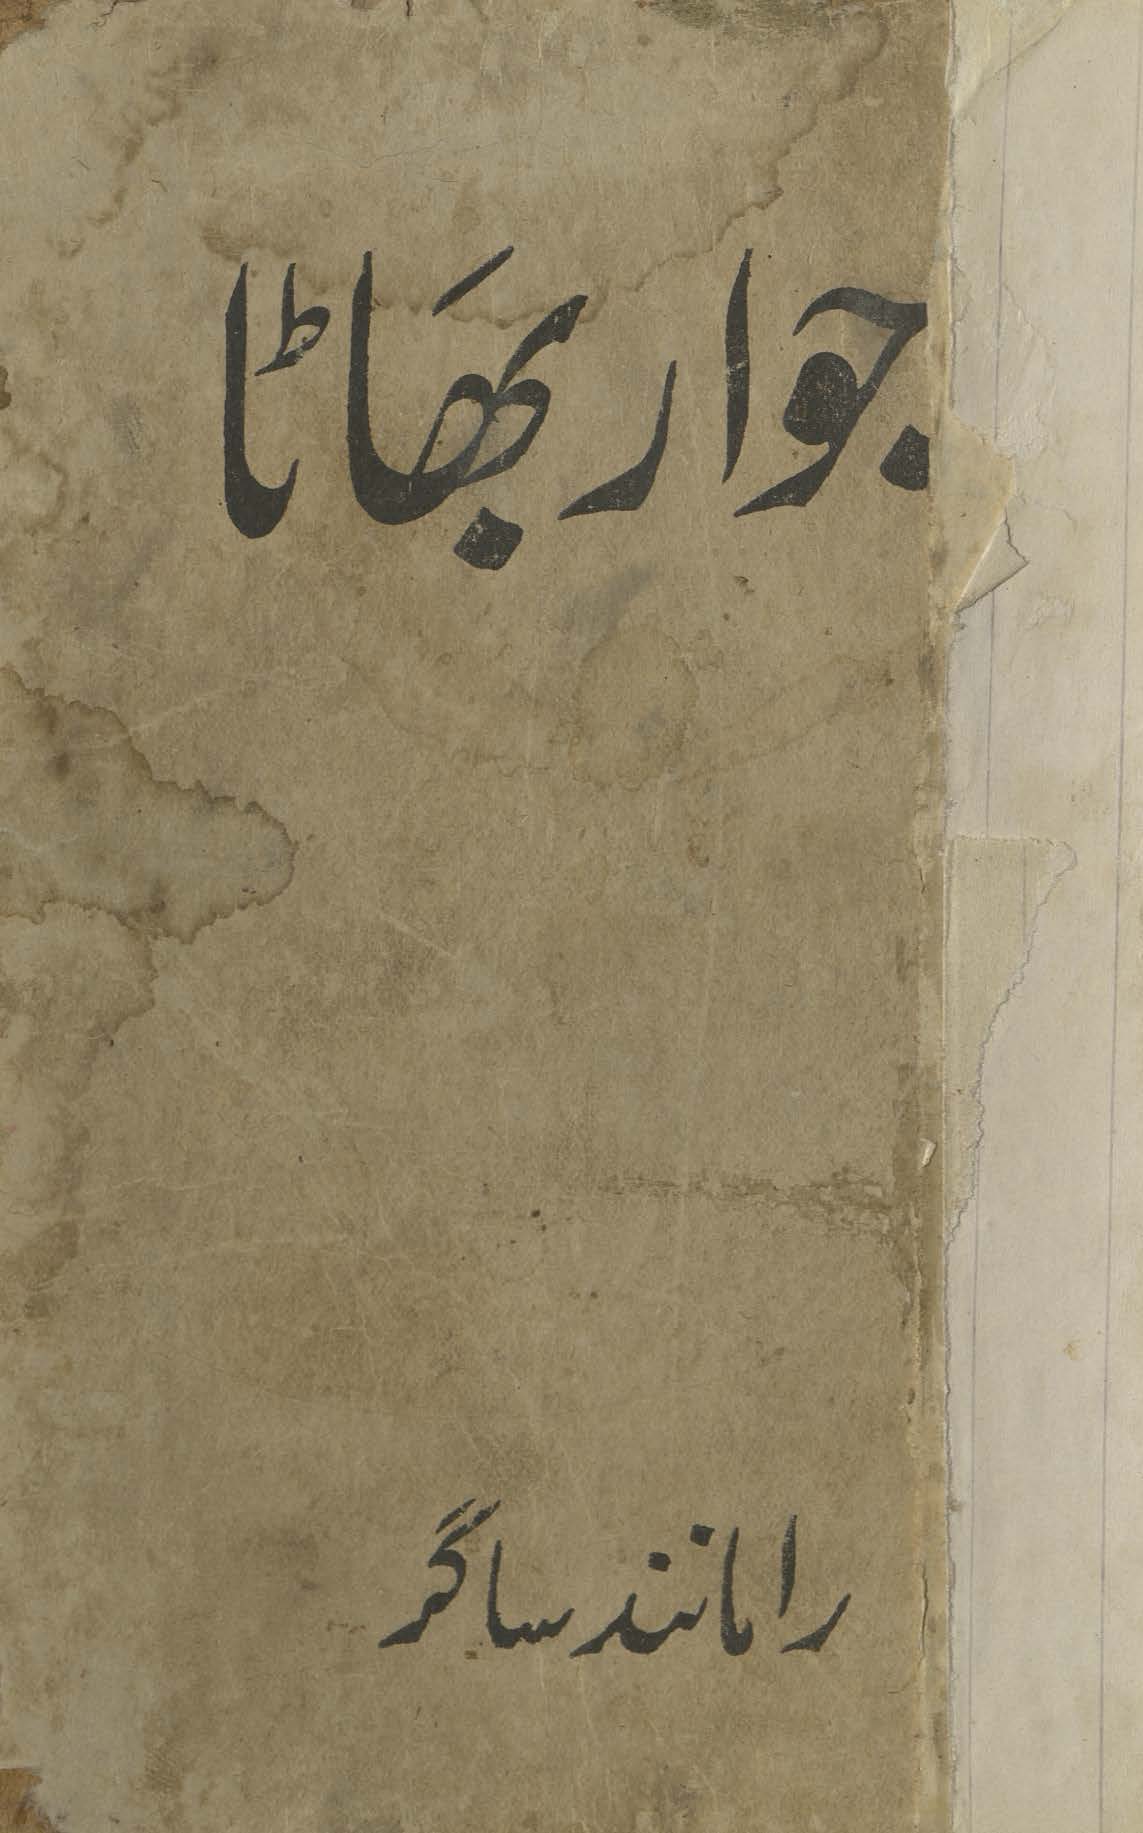 جوار بھاٹا
رامانند ساگر